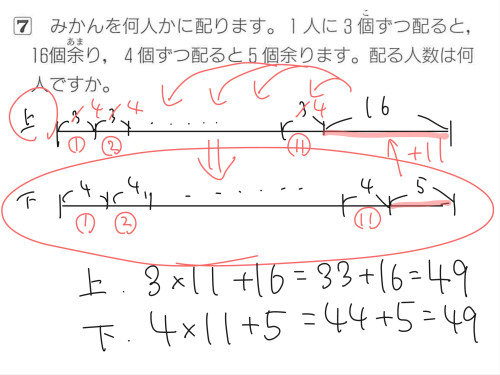 7 みかんを何人かに配ります。1人に3個ずつ配ると,
16個余り, 4個ずつ配ると5個余ります。配る人数は何
人ですか。
上 3 4 3 4 ...... 3 4 16
① ② ⑪ +11
下 4 4 ...... 4 5
① ② ⑪
上. 3×11+16=33+16=49
下. 4×11+5=44+5=49